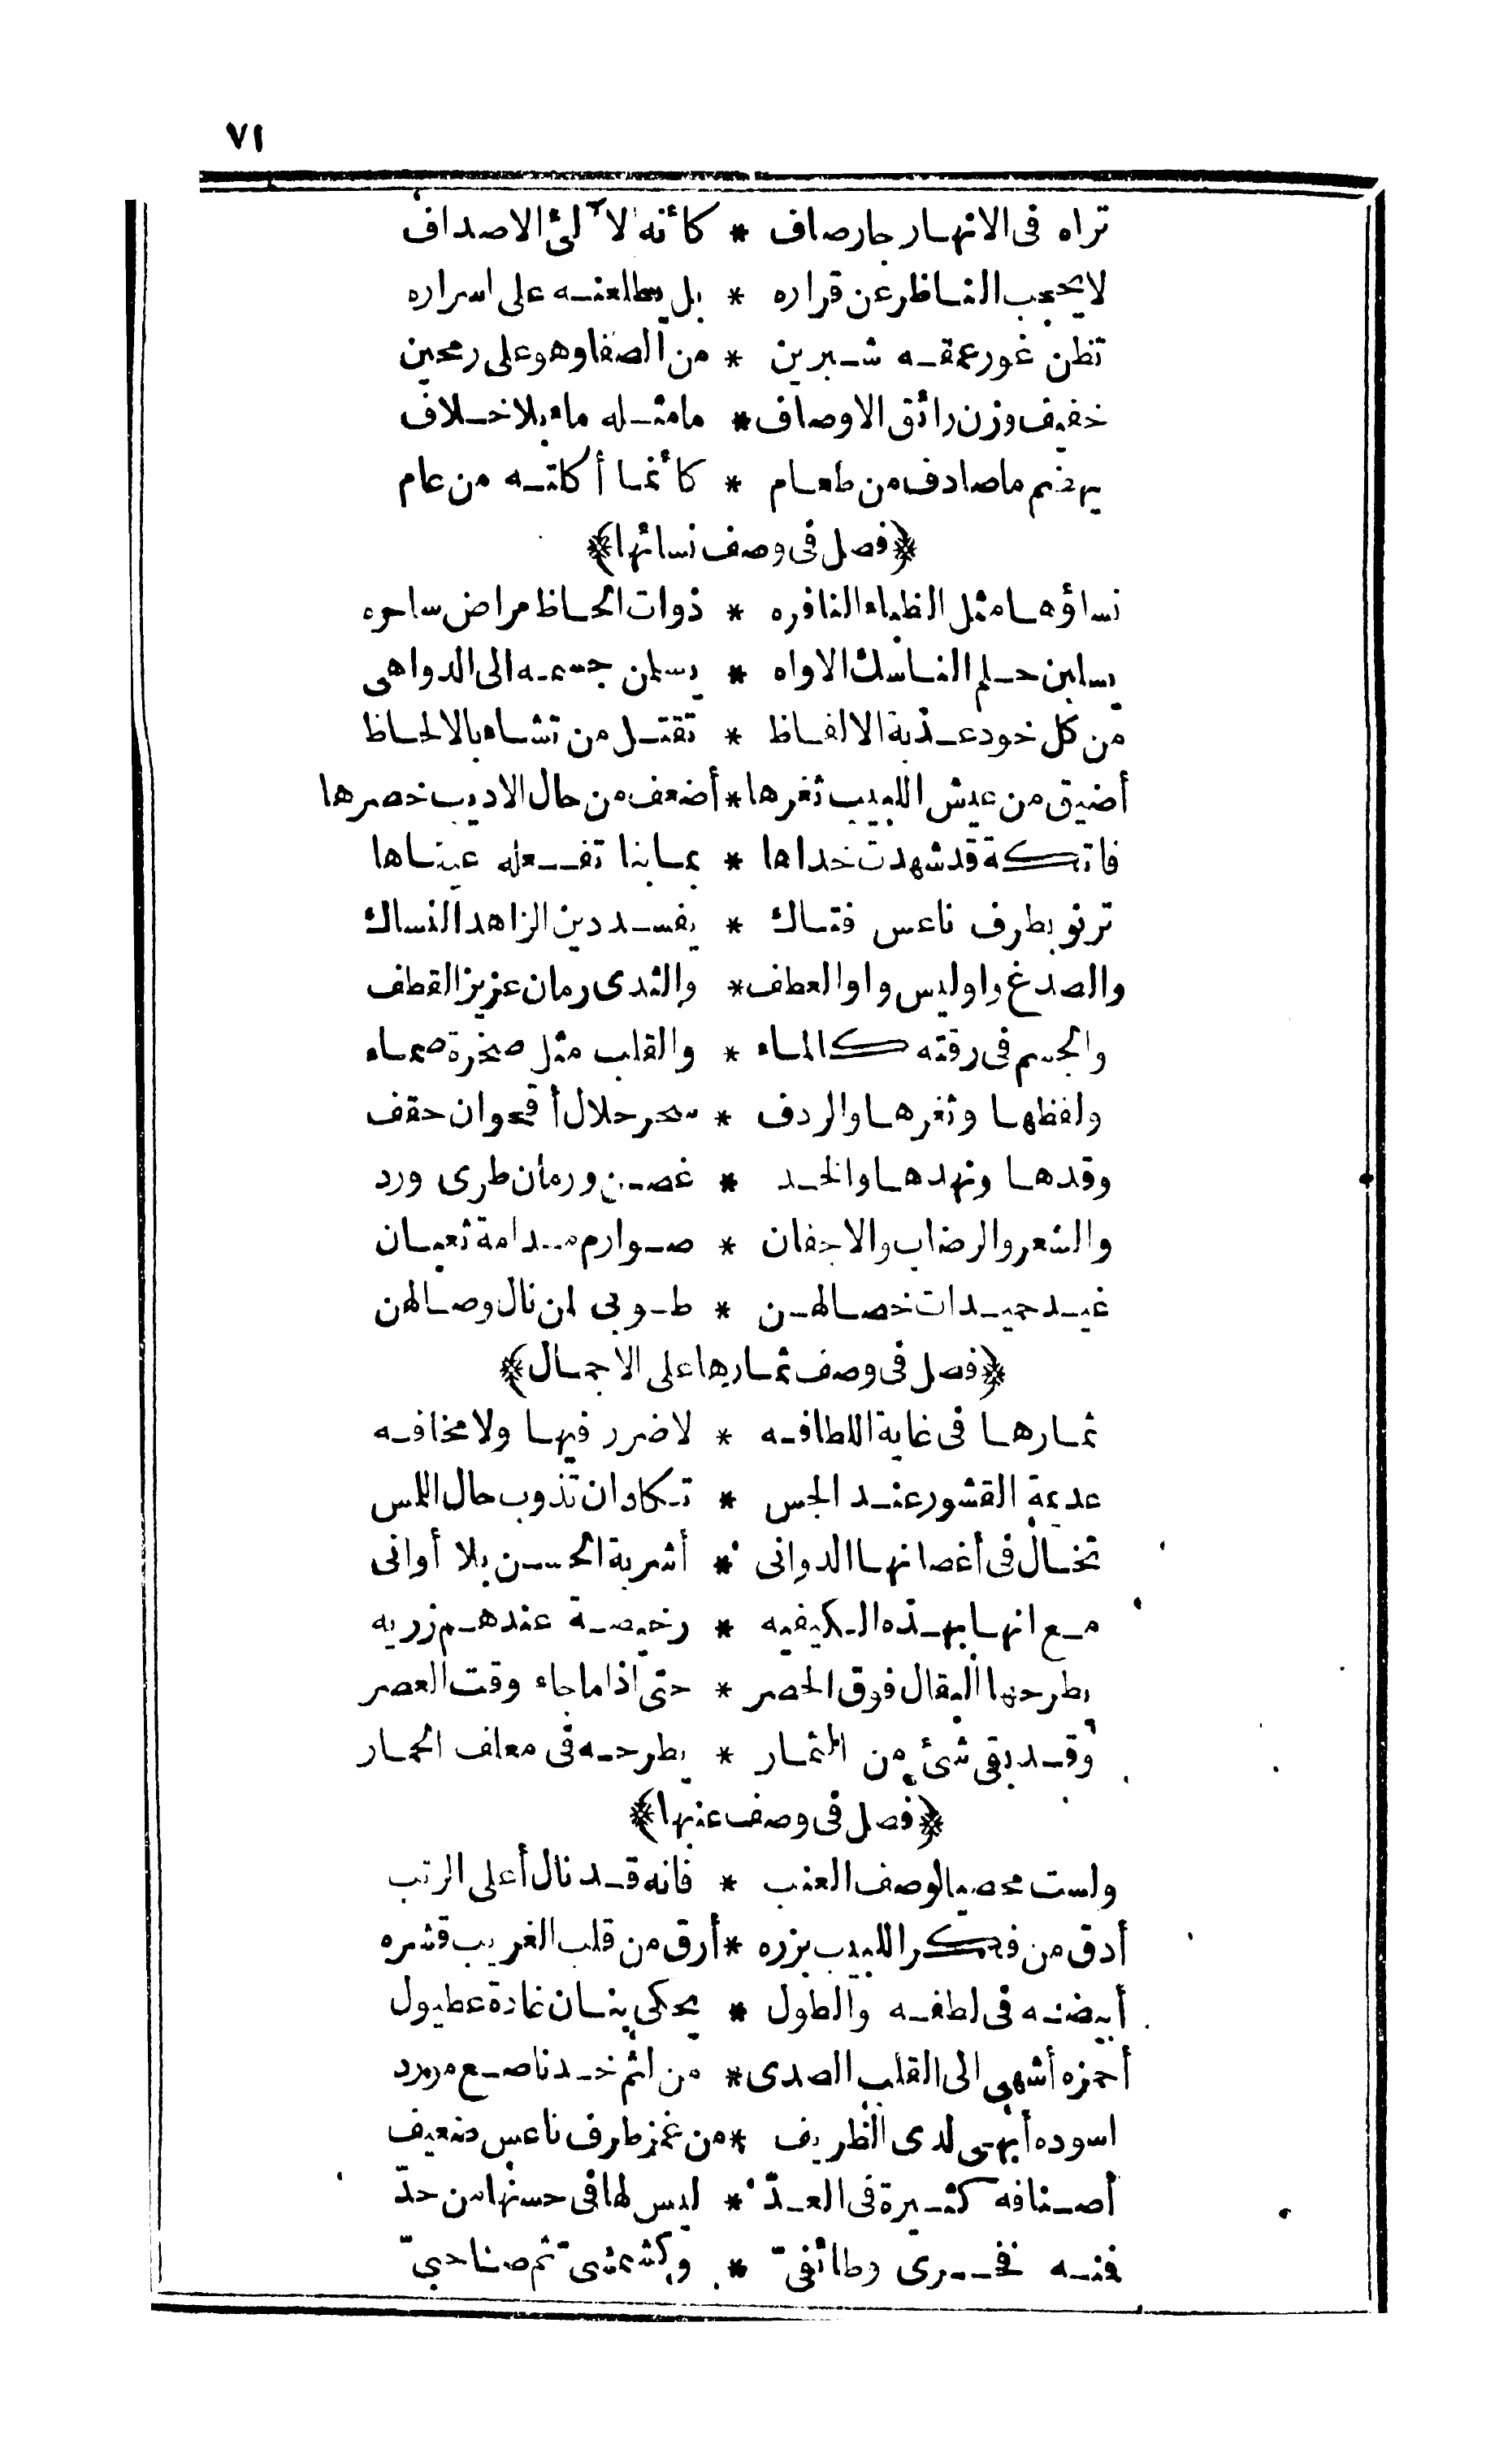 ٧١
تراه فى الانهار جار صاف * كأنه لآلئ الاصداف
لا يحجب الناظر عن قراره * بل يطلعنه على اسراره
تظن غور عمقه شبرين * من الصفا وهو على رمحين
خفيف وزن رائق الاوصاف * ما مثله ماء بلا خلاف
يهضم ما صادف من طعام * كأنما أكلته من عام
﴿فصل فى وصف نسائها﴾
نساؤها مثل الظباء النافره * ذوات الحاظ مراض ساحره
يسلبن حلم الناسك الاواه * يسلمن جسمه الى الدواهى
من كل خود عذبة الالفاظ * تقتل من تشاء بالالحاظ
أضيق من عيش اللبيب ثغرها * أضعف من حال الاديب خصرها
فاتكة قد شهدت خداها * بما بنا تفعله عيناها
ترنو بطرف ناعس فتاك * يفسد دين الزاهد النساك
والصدغ واو ليس واو العطف * والثدى رمان عزيز القطف
والجسم فى رقته كالماء * والقلب مثل صخرة صماء
ولفظها وثغرها والردف * سحر حلال أقحوان حقف
وقدها ونهدها والخد * غصن ورمان طرى ورد
والشعر والرضاب والاجفان * صوارم مدامة ثعبان
غيد حميدات خصالهن * طوبى لمن نال وصالهن
﴿فصل فى وصف ثمارها على الاجمال﴾
ثمارها فى غاية اللطافه * لا ضرر فيها ولا مخافه
عديمة القشور عند الجس * تكاد ان تذوب حال اللمس
تخال فى أغصانها الدوانى * أشربة الحسن بلا أوانى
مع انها بهذه الكيفيه * رخيصة عندهم زريه
يطرحها البقال فوق الحصر * حتى اذا ما جاء وقت العصر
وقد بقى شئ من الثمار * يطرحه فى معلف الحمار
﴿فصل فى وصف عنبها﴾
ولست محصيا لوصف العنب * فانه قد نال أعلى الرتب
أدق من فكر اللبيب بزره * أرق من قلب الغريب قشره
أبيضه فى لطفه والطول * يحكى بنان غادة عطبول
أحمره أشهى الى القلب الصدى * من لثم خد ناصع مورد
اسوده أبهى لدى الظريف * من غمز طرف ناعس ضعيف
أصنافه كثيرة فى العدّ * ليس لها فى حسنها من حدّ
فمنه فخرى وطائفىّ * وكشمشىّ ثم صاحبىّ